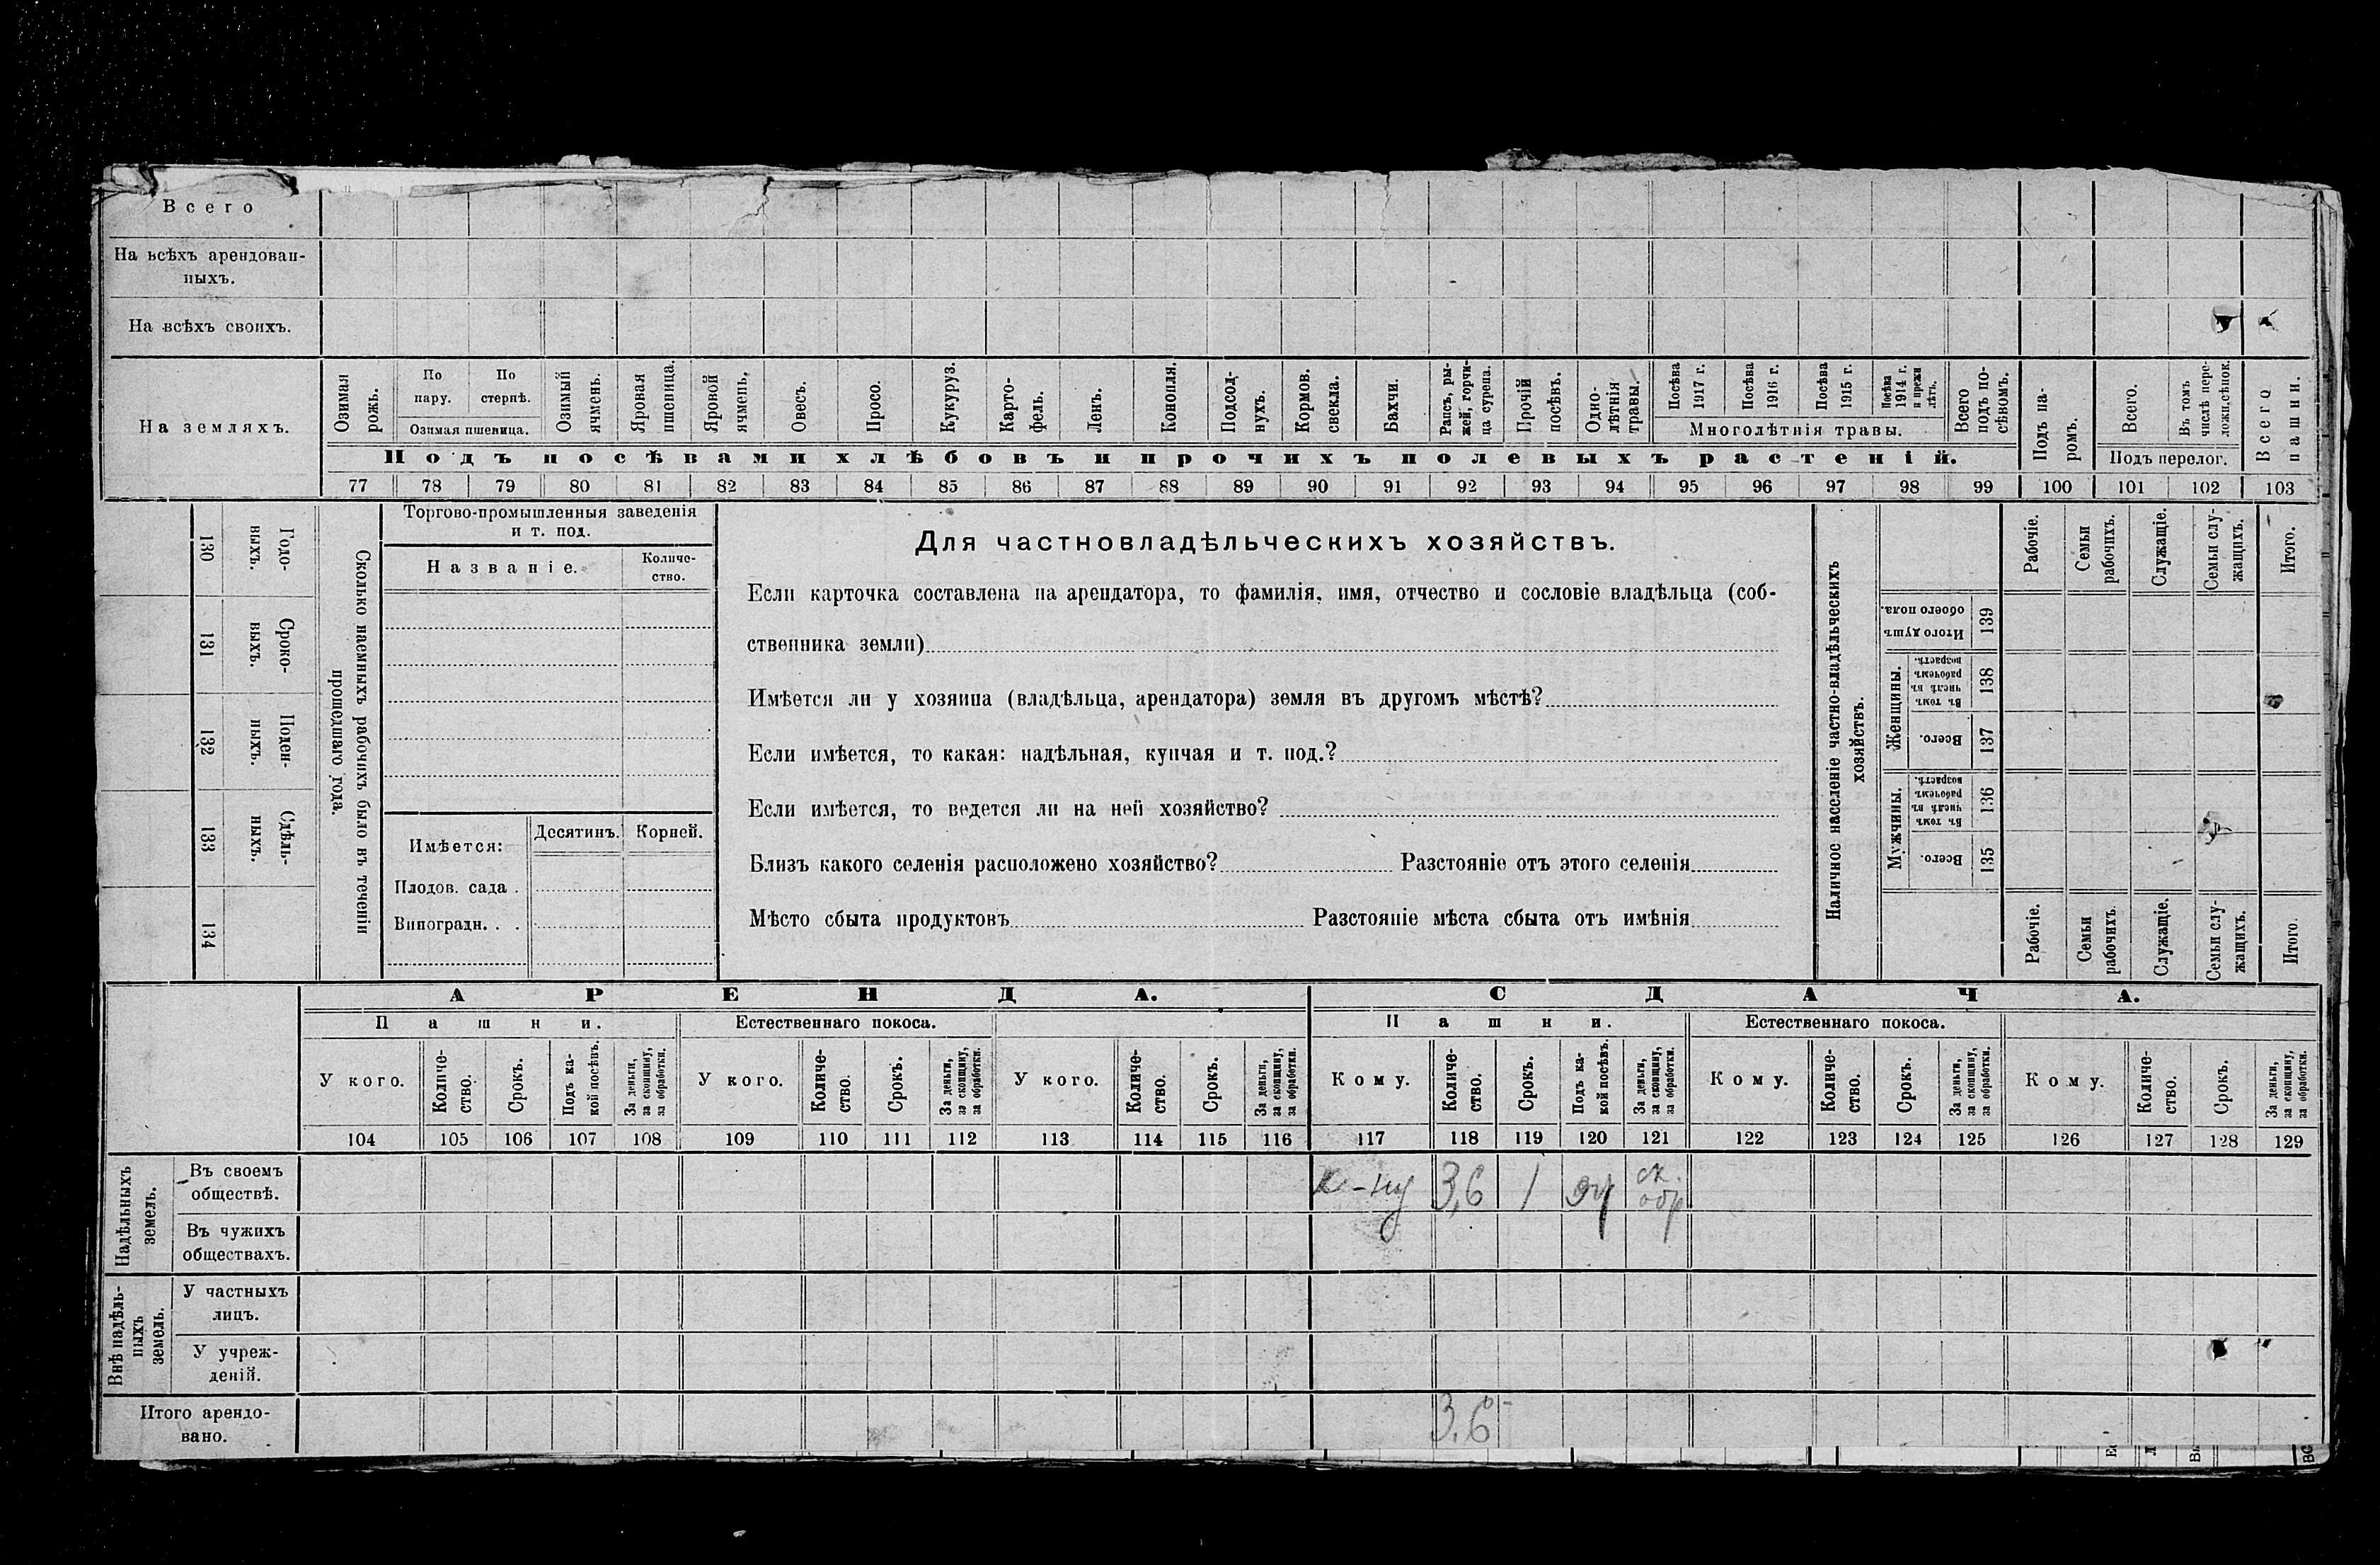 Всего
На всѣхъ арендован-
ныхъ.
На всѣхъ своихъ.
На земляхъ.
Озимая рожь.
По пару.
По стернѣ.
Озимая пшеница.
Озимый ячмень.
Яровая пшеница.
Яровой ячмень.
Овесъ.
Просо.
Кукуруз.
Карто-
фель.
Ленъ.
Конопля.
Подсод-
нухъ.
Кормов.
свекла.
Бахчи.
Рапсъ, ры-
жей, горчи-
ца сурепа.
Прочій посѣвъ.
Одно-
лѣтнія
травы.
Посѣва 1917 г.
Посѣва 1916 г.
Посѣва 1915 г.
Посѣва 1914 г. и прежн лѣтъ.
Многолѣтнія травы.
Всего подъ по-
сѣвомъ.
Подъ посѣвами хлѣбовъ и прочихъ полевыхъ растеній.
Подъ па-
ромъ.
Всего.
Въ томъ числѣ пере-
ложн.сѣнок.
Подъ перелог.
Всего пашни.
77 78 79 80 81 82 83 84 85 86 87 88 89 90 91 92 93 94 95 96 97 98 99 100 101 102 103
Годо-
выхъ.
130
Сроко-
выхъ.
131
Поден-
ныхъ.
132
Сдѣль-
ныхъ.
133
134
Сколько наемныхъ рабочихъ было въ теченіи
прошедшаго года.
Торгово-промышленныя заведенія
и т. под.
Названіе.
Количе-
ство.
Имѣется:
Десятинъ.
Корней.
Плодов. сада .
Виноградн. . .
Для частновладѣльческихъ хозяйствъ.
Если карточка составлена на арендатора, то фамилія, имя, отчество и сословіе владѣльца (соб-
ственника земли)
Имѣется ли у хозяина (владѣльца, арендатора) земля въ другомъ мѣстѣ?
Если имѣется, то какая: надѣльная, купчая и т. под.?
Если имѣется, то ведется ли на ней хозяйство?
Близъ какого селенія расположено хозяйство? Разстояніе отъ этого селенія
Мѣсто сбыта продуктовъ Разстояніе мѣста сбыта отъ имѣнія
Наличное населеніе частно-владѣльческихъ
хозяйствъ.
Рабочіе.
Семьи рабочихъ.
Служащіе.
Семьи слу-
жащихъ.
Итого.
Итого душъ
обоего пола.
139
Женщины.
Въ томъ
числѣ въ
рабочемъ
возрастѣ.
138
Всего.
137
Мужчины.
Въ томъ
числѣ въ
рабочемъ
возрастѣ.
136
Всего.
135
Рабочіе.
Семьи рабочихъ.
Служащіе.
Семьи слу-
жащихъ.
Итого
АРЕНДА.
СДАЧА.
Пашни.
Естественнаго покоса.
Пашни.
Естественнаго покоса.
У кого.
Количе-
ство.
Срокъ.
Подъ ка-
кой посѣвъ.
За деньги,
за скопщину,
за обработки.
У кого.
Количе-
ство.
Срокъ.
За деньги,
за скопщину,
за обработки.
У кого.
Количе-
ство.
Срокъ.
За деньги,
за скопщину,
за обработки.
Кому.
Количе-
ство.
Срокъ.
Подъ ка-
кой посѣвъ.
За деньги,
за скопщину,
за обработки.
Кому.
Количе-
ство.
Срокъ.
За деньги,
за скопщину,
за обработки.
Кому.
Количе-
ство.
Срокъ.
За деньги,
за скопщину,
за обработки.
104 105 106 107 108 109 110 111 112 113 114 115 116 117 118 119 120 121 122 123 124 125 126 127 128 129
Надѣльныхъ
земель.
Въ своемъ
обществѣ.
к-ну 3,6 1 ск. обр
Въ чужихъ
обществахъ.
Внѣ надѣль-
ныхъ
земель.
У частныхъ
лицъ.
У учреж-
деній.
Итого арендо-
вано.
3.6